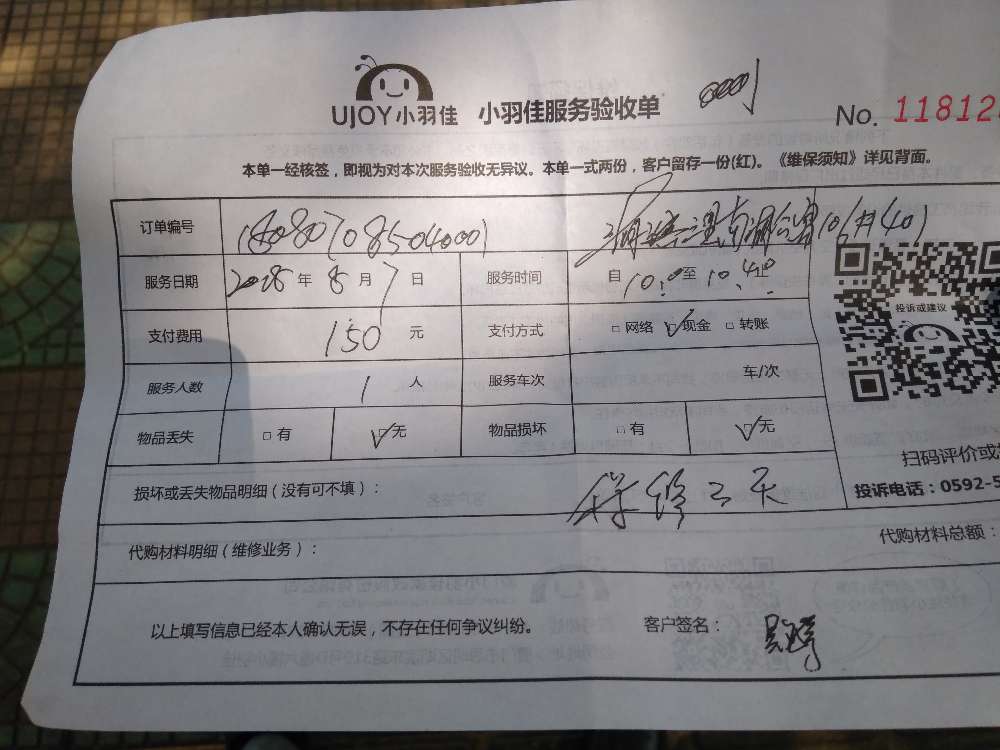 UJOY小羽佳 小羽佳服务验收单
No. 11812
本单一经核签，即视为对本次服务验收无异议。本单一式两份，客户留存一份(红)。《维保须知》详见背面。
订单编号
服务日期 2018年8月7日 服务时间 自10:00至10:40止
投诉或建议
支付费用 150元 支付方式 □网络 ☑现金 □转账
服务人数 1人 服务车次 车/次
物品丢失 □有 ☑无 物品损坏 □有 ☑无
扫码评价或
损坏或丢失物品明细（没有可不填）：
投诉电话：0592-5
代购材料明细（维修业务）：
代购材料总额：
以上填写信息已经本人确认无误，不存在任何争议纠纷。 客户签名：